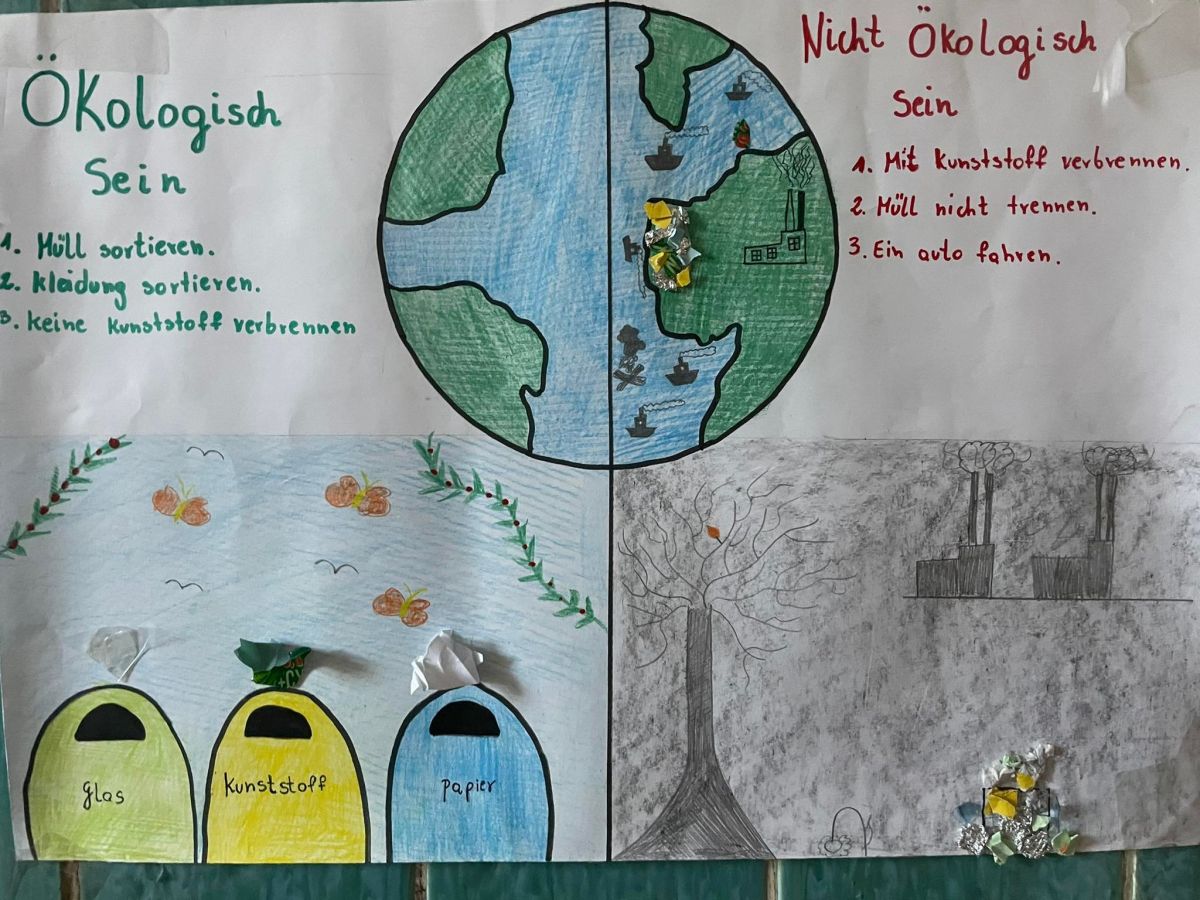 Ökologisch
Sein
1. Müll sortieren.
2. Kleidung sortieren.
3. keine kunststoff verbrennen
Nicht Ökologisch
Sein
1. Mit kunststoff verbrennen.
2. Müll nicht trennen.
3. Ein auto fahren.
glas
kunststoff
papier